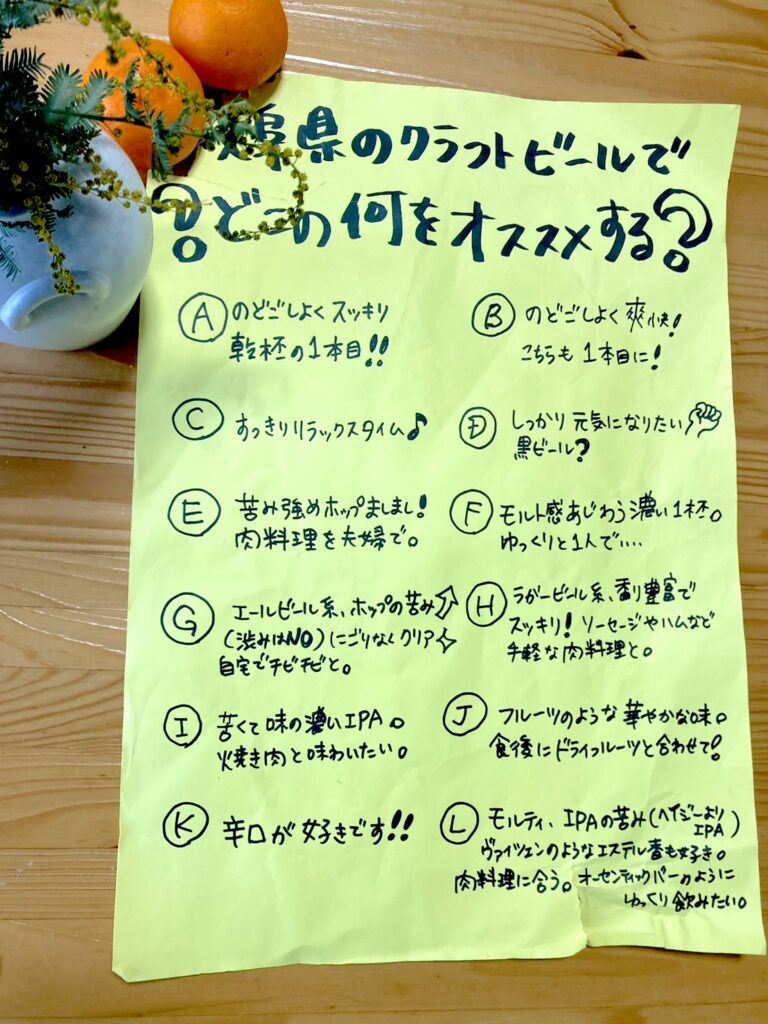 阜県のクラフトビールで
?どこの何をオススメする?
Ⓐ のどごしよく スッキリ
乾杯の1本目!!
Ⓑ のどごしよく 爽快!
こちらも 1本目に!
Ⓒ すっきりリラックスタイム♪
Ⓓ しっかり 元気になりたい
黒ビール?
Ⓔ 苦み強めホップましまし!
肉料理を夫婦で。
Ⓕ モルト感あじわう濃い1杯。
ゆっくりと1人で....
Ⓖ エールビール系、ホップの苦み⇧
(渋みはNO)にごりなくクリア✧
自宅でチビチビと。
Ⓗ ラガービール系、香り豊富で
スッキリ! ソーセージやハムなど
手軽な肉料理と。
Ⓘ 苦くて味の濃いIPA。
焼き肉と味わいたい。
Ⓙ フルーツのような華やかな味。
食後にドライフルーツと合わせて!
Ⓚ 辛口が好きです!!
Ⓛ モルティ、IPAの苦み(ヘイジーよりIPA)
ヴァイツェンのようなエステル香も好き。
肉料理に合う。オーセンティックバーのように
ゆっくり飲みたい。